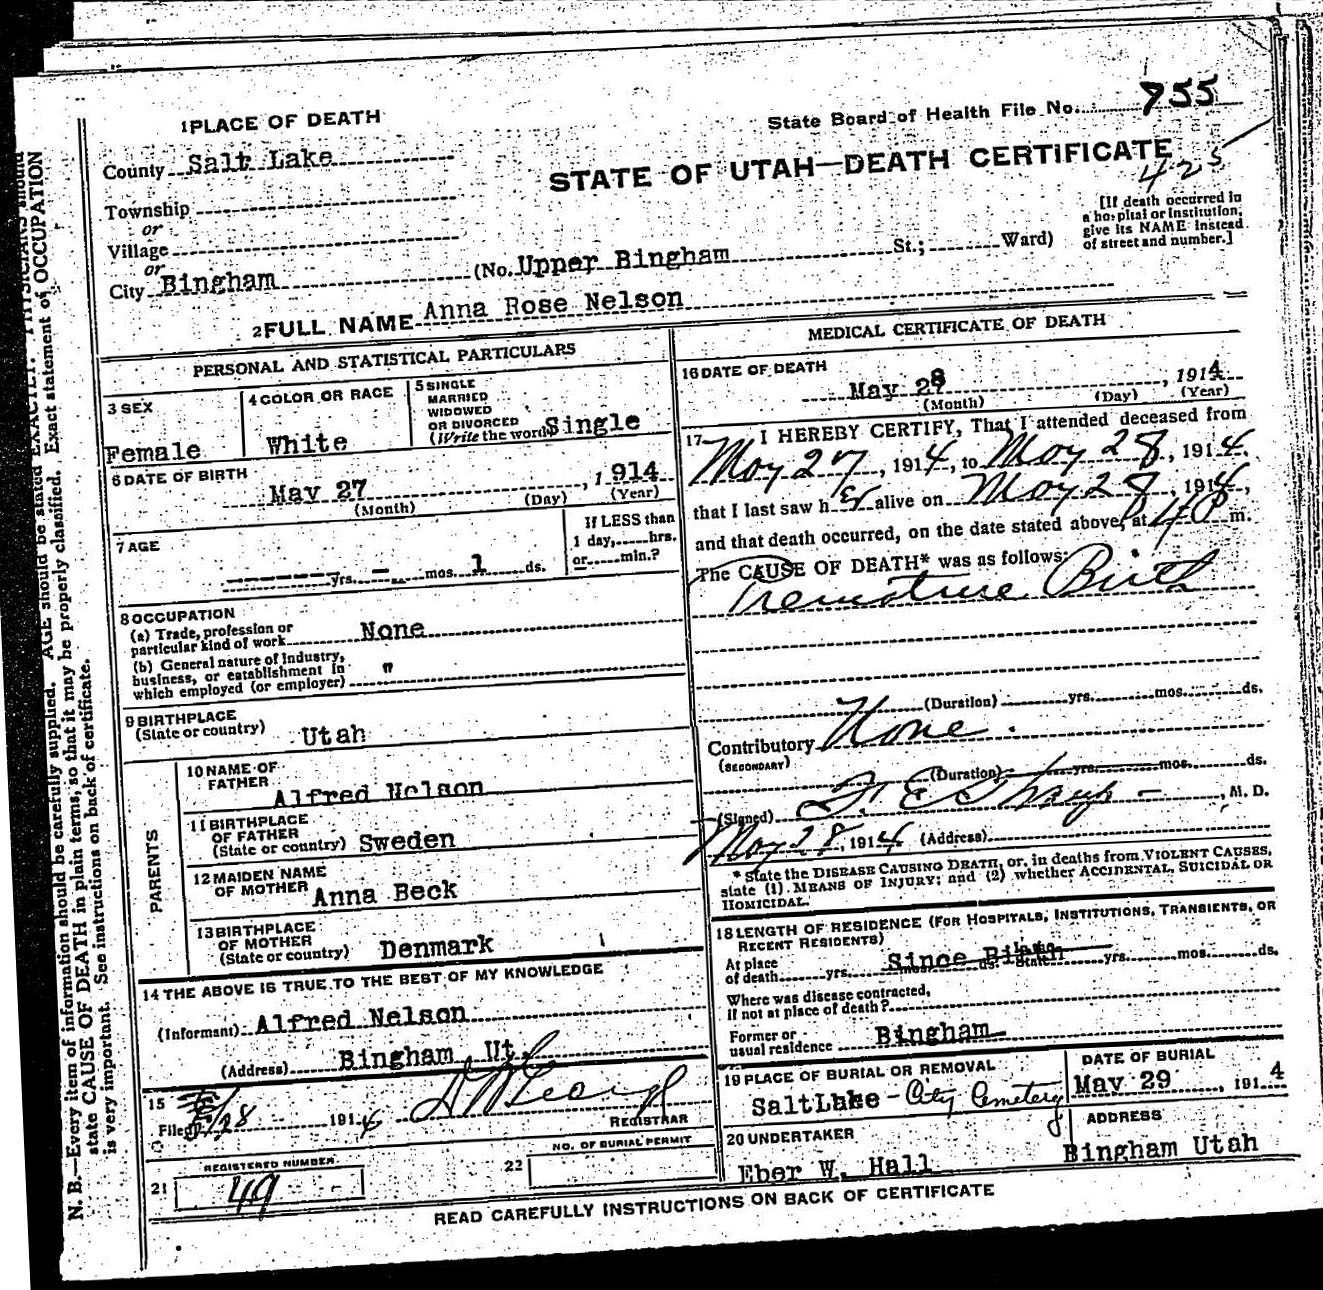 State Board of Health File No. 755
STATE OF UTAH—DEATH CERTIFICATE
425
[If death occurred in
a hospital or institution,
give its NAME instead
of street and number.]
1 PLACE OF DEATH
County Salt Lake
Township
or
Village
or
City Bingham (No. Upper Bingham St.; Ward)
2 FULL NAME Anna Rose Nelson
PERSONAL AND STATISTICAL PARTICULARS
3 SEX
Female
4 COLOR OR RACE
White
5 SINGLE
MARRIED
WIDOWED
OR DIVORCED
(Write the word) Single
6 DATE OF BIRTH
May 27, 1914
(Month) (Day) (Year)
7 AGE
yrs. mos. 1 ds.
If LESS than
1 day, hrs.
or min.?
8 OCCUPATION
(a) Trade, profession or
particular kind of work None
(b) General nature of industry,
business, or establishment in
which employed (or employer) "
9 BIRTHPLACE
(State or country) Utah
PARENTS
10 NAME OF
FATHER
Alfred Nelson
11 BIRTHPLACE
OF FATHER
(State or country) Sweden
12 MAIDEN NAME
OF MOTHER Anna Beck
13 BIRTHPLACE
OF MOTHER
(State or country) Denmark
14 THE ABOVE IS TRUE TO THE BEST OF MY KNOWLEDGE
(Informant) Alfred Nelson
(Address) Bingham, Ut.
15
Filed 5/28 1914
REGISTRAR
REGISTERED NUMBER
21 49
22 NO. OF BURIAL PERMIT
MEDICAL CERTIFICATE OF DEATH
16 DATE OF DEATH
May 28, 1914
(Month) (Day) (Year)
17 I HEREBY CERTIFY, That I attended deceased from
May 27, 1914, to May 28, 1914,
that I last saw her alive on May 28, 1914,
and that death occurred, on the date stated above, at m.
The CAUSE OF DEATH* was as follows:
Premature Birth
(Duration) yrs. mos. ds.
Contributory None.
(SECONDARY)
(Duration) yrs. mos. ds.
(Signed) M. D.
May 28, 1914 (Address)
* State the DISEASE CAUSING DEATH, or, in deaths from VIOLENT CAUSES,
state (1) MEANS OF INJURY; and (2) whether ACCIDENTAL, SUICIDAL OR
HOMICIDAL.
18 LENGTH OF RESIDENCE (FOR HOSPITALS, INSTITUTIONS, TRANSIENTS, OR
RECENT RESIDENTS)
At place
of death yrs. mos. ds. State yrs. mos. ds.
Since Birth
Where was disease contracted,
if not at place of death?
Former or
usual residence Bingham
19 PLACE OF BURIAL OR REMOVAL
Salt Lake - City Cemetery
DATE OF BURIAL
May 29, 1914
20 UNDERTAKER
Eber W. Hall
ADDRESS
Bingham Utah
READ CAREFULLY INSTRUCTIONS ON BACK OF CERTIFICATE
N. B.—Every item of information should be carefully supplied. AGE should be stated EXACTLY. PHYSICIANS should
state CAUSE OF DEATH in plain terms, so that it may be properly classified. Exact statement of OCCUPATION
is very important. See instructions on back of certificate.